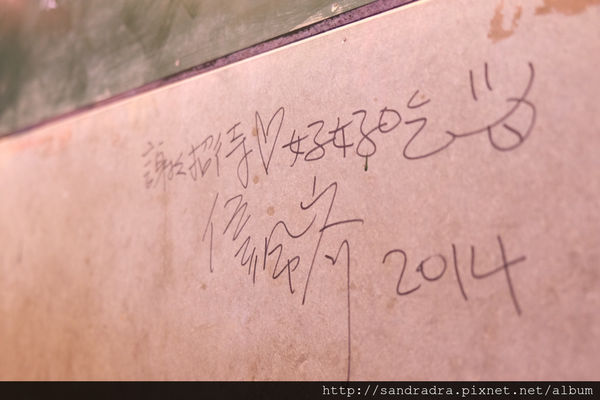 謝謝招待♡好好吃
2014
http://sandradra.pixnet.net/album